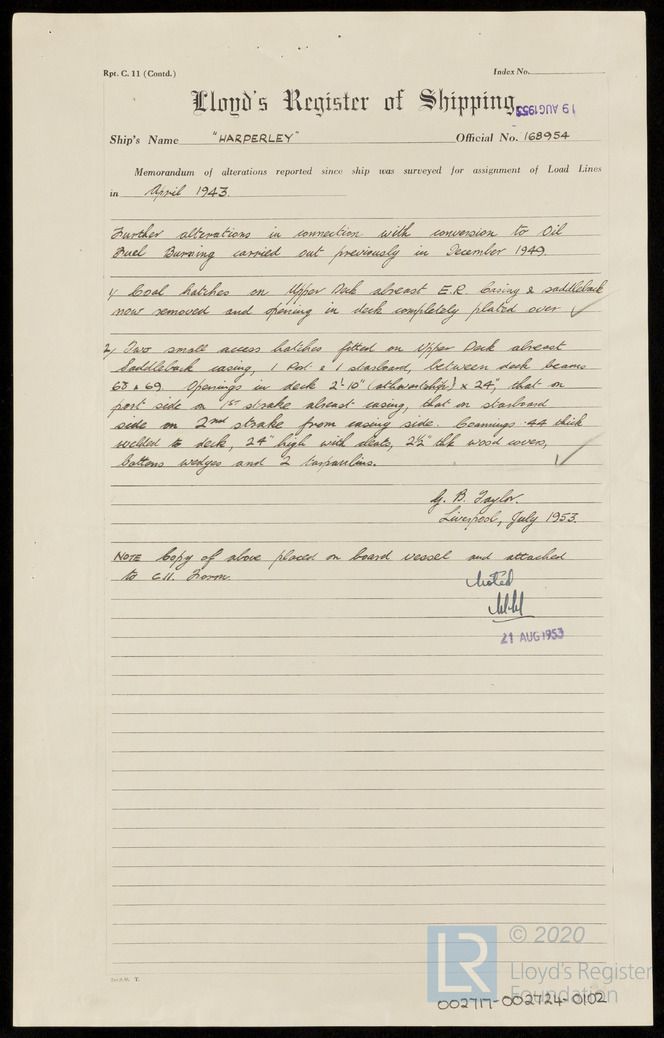 Rpt. C. 11 (Contd.)
Index No.
Lloyd's Register of Shipping.
19 AUG 1953
Ship's Name "HARPERLEY" Official No. 168954
Memorandum of alterations reported since ship was surveyed for assignment of Load Lines
in April 1943.
Further alterations in connection with conversion to Oil
Fuel Burning carried out previously in December 1949.
1/ Coal hatches on Upper Deck abreast E.R. Casing & saddleback
now removed and opening in deck completely plated over
2/ Two small access hatches fitted on Upper Deck abreast
Saddleback casing, 1 Port & 1 starboard, between deck beams
68 & 69. Openings in deck 2'-10" (athwartship) x 24", that on
port side on 1st strake abreast casing, that on starboard
side on 2nd strake from casing side. Coamings .44 thick
welded to deck, 24" high with cleats, 2½" thk wood covers,
battens wedges and 2 tarpaulins.
G. B. Taylor.
Liverpool, July 1953.
NOTE Copy of above placed on board vessel and attached
to C11. Form.
Noted
21 AUG 1953
© 2020
LR
Lloyd's Register
Foundation
002717-002724-0102